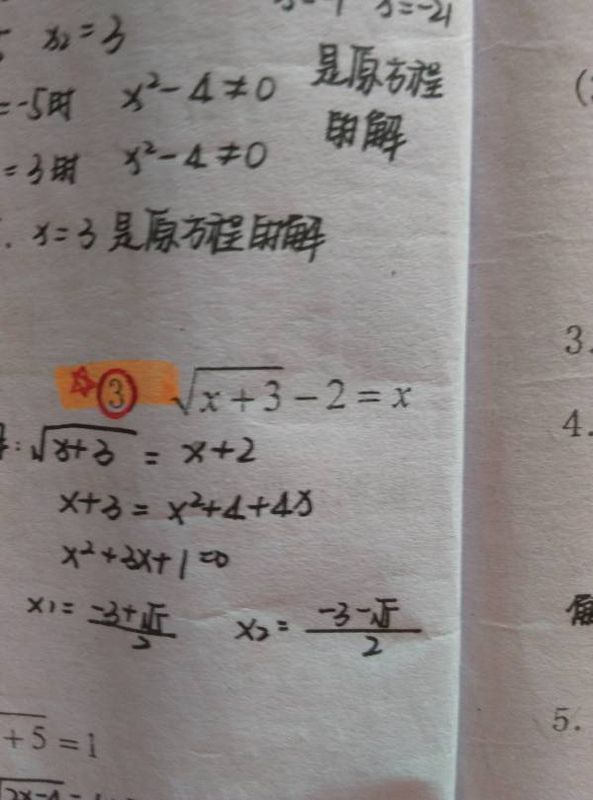 x=-21
x₂=3
=-5时 x²-4≠0 是原方程
的解
=3时 x²-4≠0
x=3是原方程的解
3.
☆③ √(x+3)-2=x
4.
:√(x+3)=x+2
x+3=x²+4+4x
x²+3x+1=0
x₁=(-3+√5)/2 x₂=(-3-√5)/2
+5=1
5.